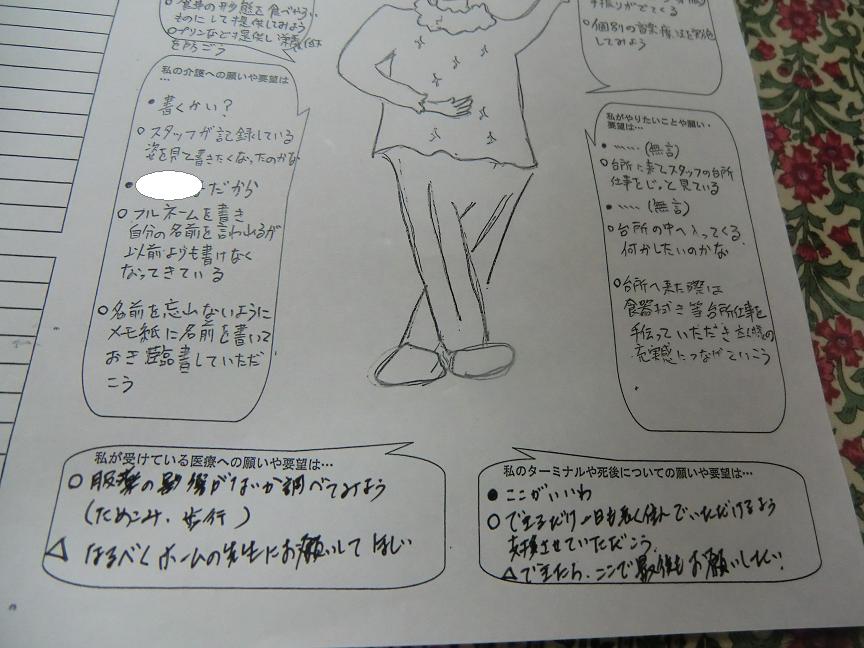 ○食事の形態を食べやすい
ものにして提供してみよう
○プリンなど提供し
を防ごう
手振りがでてくる
○個別の音楽療法を
してみよう
私の介護への願いや要望は
…
●書くかい？
○スタッフが記録している
姿を見て書きたくなったのかな
●だから
○フルネームを書き
自分の名前を言われるが
以前よりも書けなく
なってきている
○名前を忘れないように
メモ紙に名前を書いて
おき臨書していただ
こう
私がやりたいことや願い・
要望は…
●……(無言)
○台所に来てスタッフの台所
仕事をじっと見ている
●……(無言)
○台所の中へ入ってくる
何かしたいのかな
○台所へ来た際は
食器拭き等台所仕事を
手伝っていただき
充実感につなげていこう
私が受けている医療への願いや要望は…
○服薬の影響がないか調べてみよう
(ためこみ、歩行)
△なるべくホームの先生にお願いしてほしい
私のターミナルや死後についての願いや要望は…
●ここがいいわ
○できるだけ一日も長く住んでいただけるよう
支援させていただこう
△できたら、ここで最後もお願いしたい